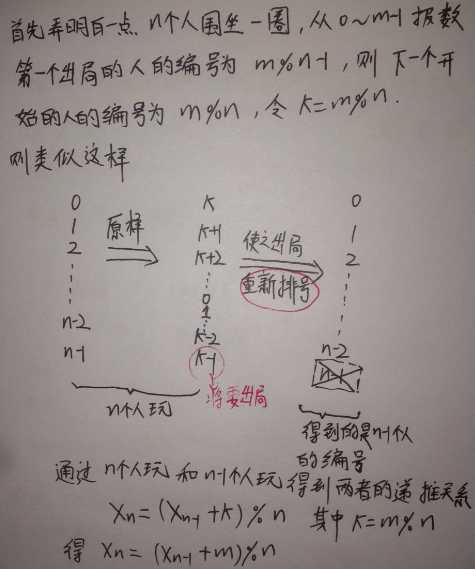 首先弄明白一点. n个人围坐一圈, 从0~m-1报数
第一个出局的人的编号为 m%n-1, 则下一个开
始的人的编号为 m%n, 令 k=m%n.
则类似这样
0
1
2
n-2
n-1
n个人玩
原样
k
k+1
k+2
0
1
k-2
k-1
将要出局
使之出局
重新排号
0
1
2
n-2
n-1
得到的是n-1个人
的编号
通过n个人玩和n-1个人玩得到两者的递推关系
Xn=(Xn-1+k)%n 其中 k=m%n
得 Xn=(Xn-1+m)%n